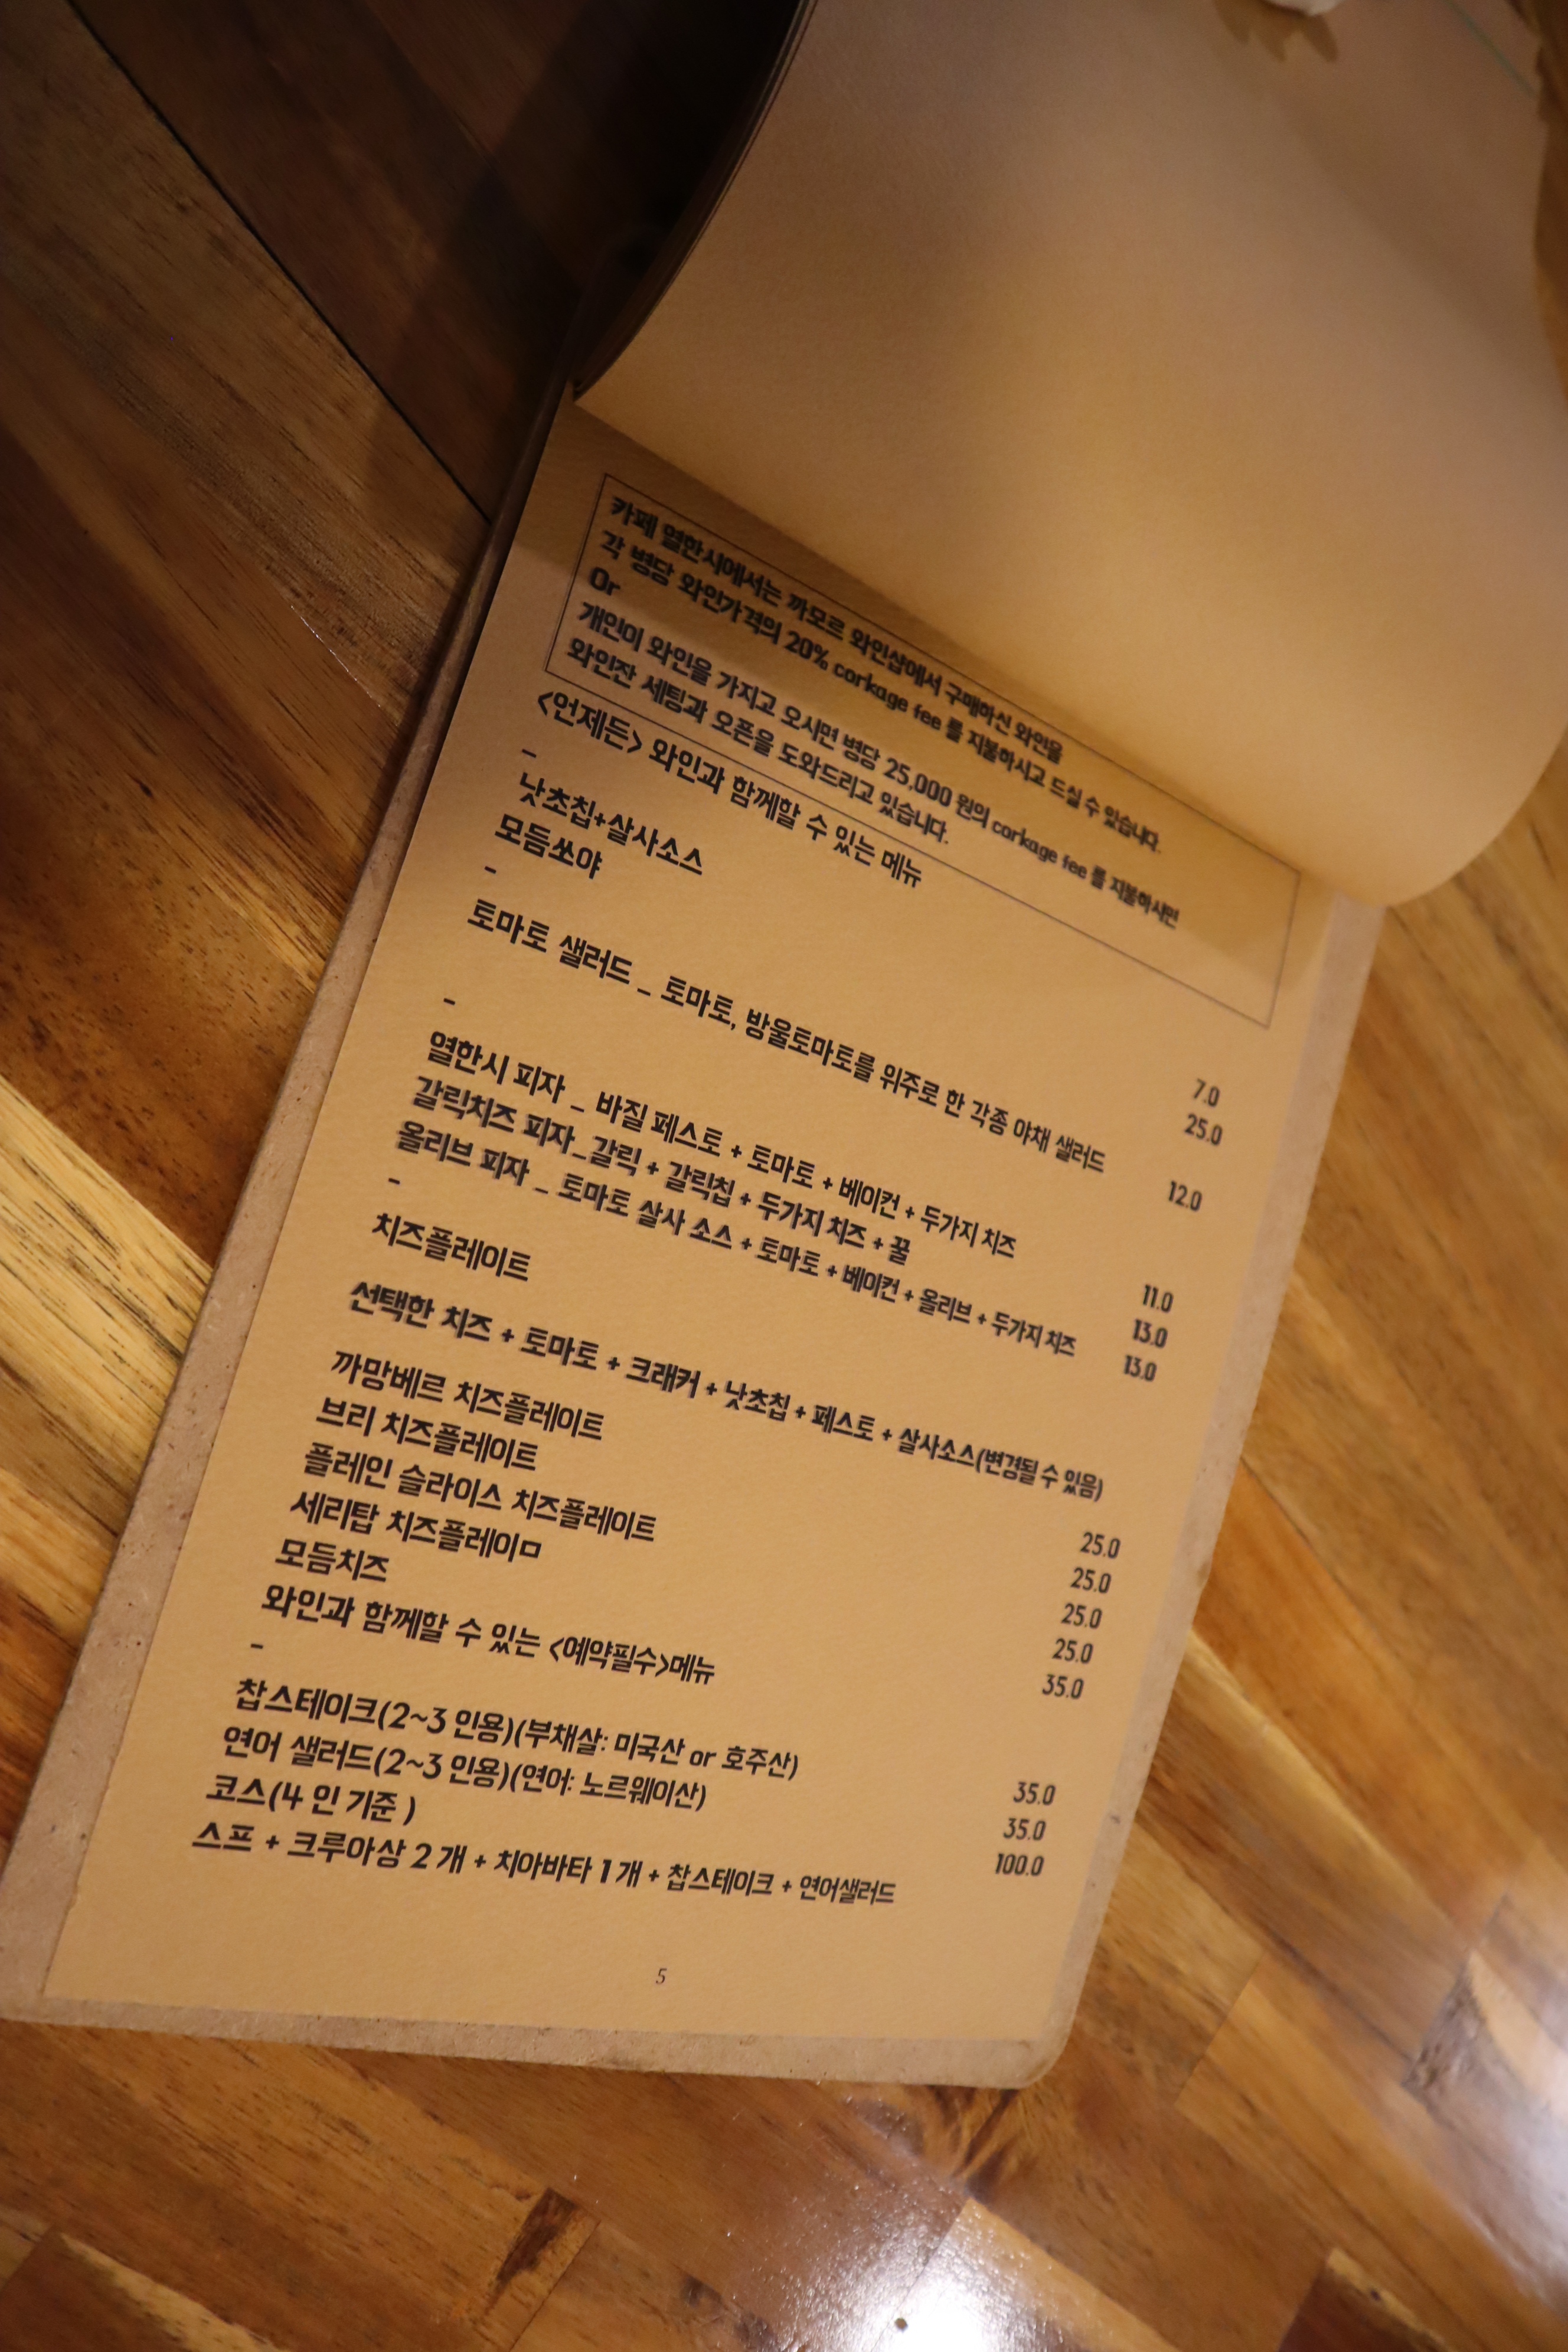 카페 열한시에서는 까모르 와인샵에서 구매하신 와인을
각 병당 와인가격의 20% corkage fee 를 지불하시고 드실 수 있습니다.
Or
개인이 와인을 가지고 오시면 병당 25,000 원의 corkage fee 를 지불하시면
와인잔 세팅과 오픈을 도와드리고 있습니다.
<언제든> 와인과 함께할 수 있는 메뉴
-
낫초칩+살사소스 7.0
모듬쏘야 25.0
-
토마토 샐러드 _ 토마토, 방울토마토를 위주로 한 각종 야채 샐러드 12.0
-
열한시 피자 _ 바질 페스토 + 토마토 + 베이컨 + 두가지 치즈 11.0
갈릭치즈 피자_갈릭 + 갈릭칩 + 두가지 치즈 + 꿀 13.0
올리브 피자 _ 토마토 살사 소스 + 토마토 + 베이컨 + 올리브 + 두가지 치즈 13.0
-
치즈플레이트
선택한 치즈 + 토마토 + 크래커 + 낫초칩 + 페스토 + 살사소스(변경될 수 있음)
까망베르 치즈플레이트 25.0
브리 치즈플레이트 25.0
플레인 슬라이스 치즈플레이트 25.0
세리탑 치즈플레이ㅁ 25.0
모듬치즈 35.0
와인과 함께할 수 있는 <예약필수>메뉴
-
찹스테이크(2~3 인용)(부채살: 미국산 or 호주산) 35.0
연어 샐러드(2~3 인용)(연어: 노르웨이산) 35.0
코스(4 인 기준 ) 100.0
스프 + 크루아상 2 개 + 치아바타 1 개 + 찹스테이크 + 연어샐러드
5